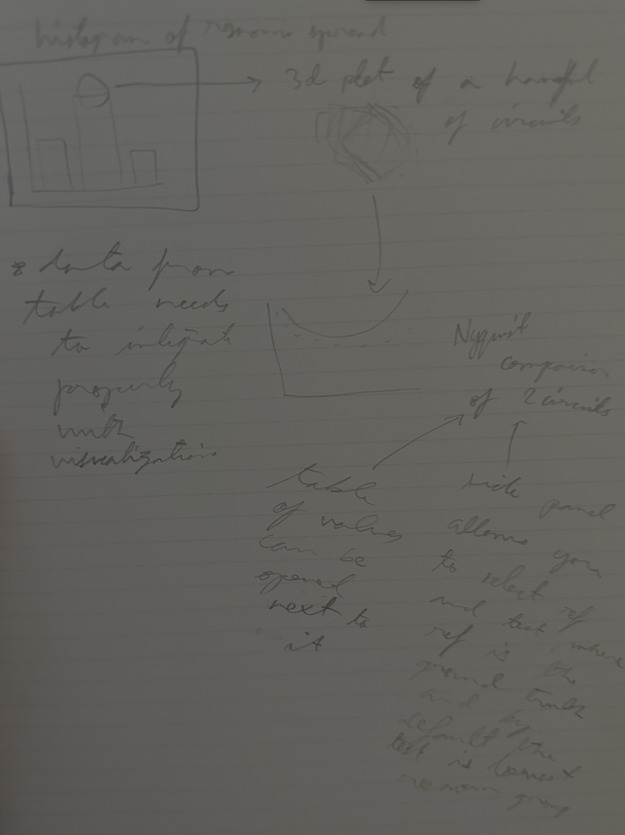 histogram of resnorm spread
3d plot of a handful
of circuits
* data from
table needs
to integrate
properly
with
visualizations
Nyquist
comparison
of 2 circuits
table
of values
can be
opened
next to
it
side panel
allows you
to select ref
and test where
ref is the
ground truth
and by
default the
test is lowest
resnorm group